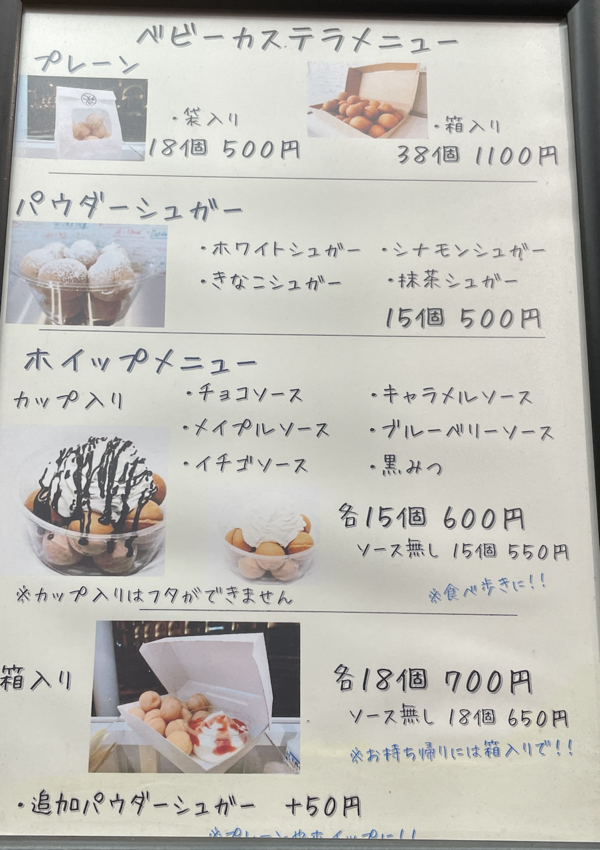 ベビーカステラメニュー
プレーン
・袋入り
18個 500円
・箱入り
38個 1100円
パウダーシュガー
・ホワイトシュガー ・シナモンシュガー
・きなこシュガー ・抹茶シュガー
15個 500円
ホイップメニュー
カップ入り
・チョコソース ・キャラメルソース
・メイプルソース ・ブルーベリーソース
・イチゴソース ・黒みつ
各15個 600円
ソース無し 15個 550円
※食べ歩きに!!
※カップ入りはフタができません
箱入り
各18個 700円
ソース無し 18個 650円
※お持ち帰りには箱入りで!!
・追加パウダーシュガー +50円
※プレーンやホイップに!!